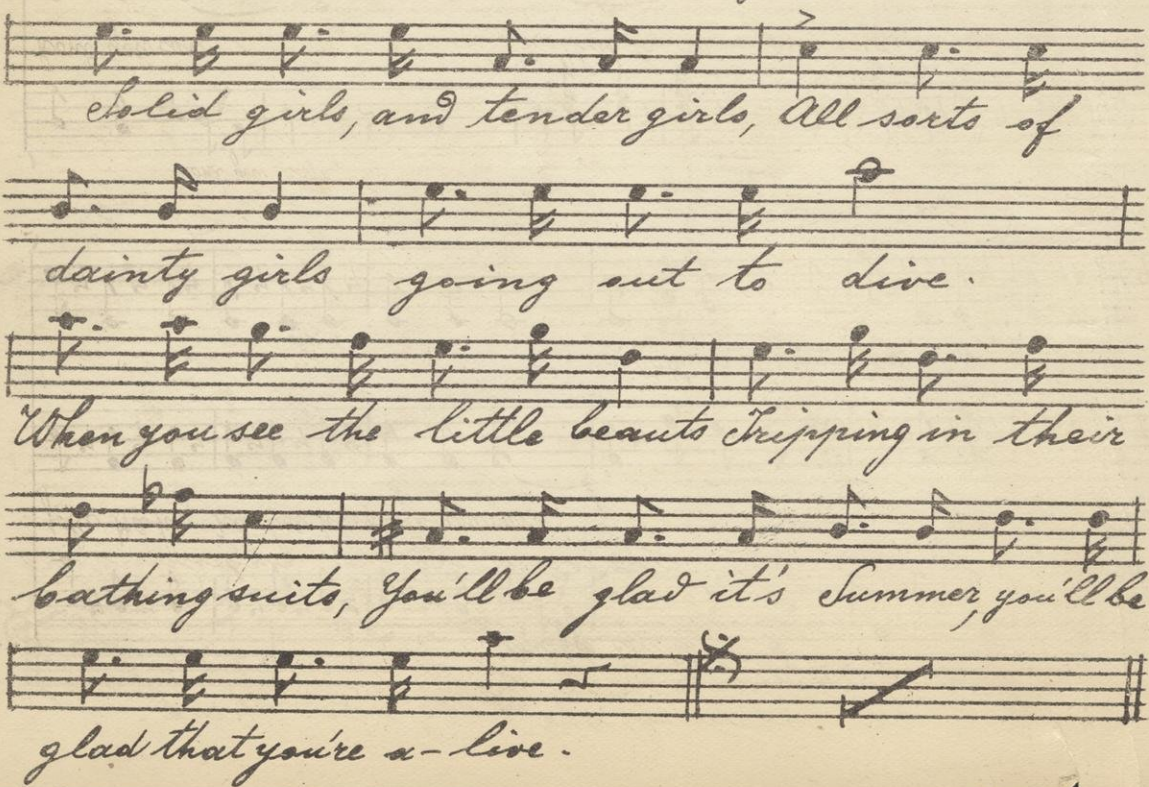 Solid girls, and tender girls, All sorts of
dainty girls going out to dive.
When you see the little beauts Tripping in their
bathing suits, You'll be glad it's Summer, you'll be
glad that you're a-live.